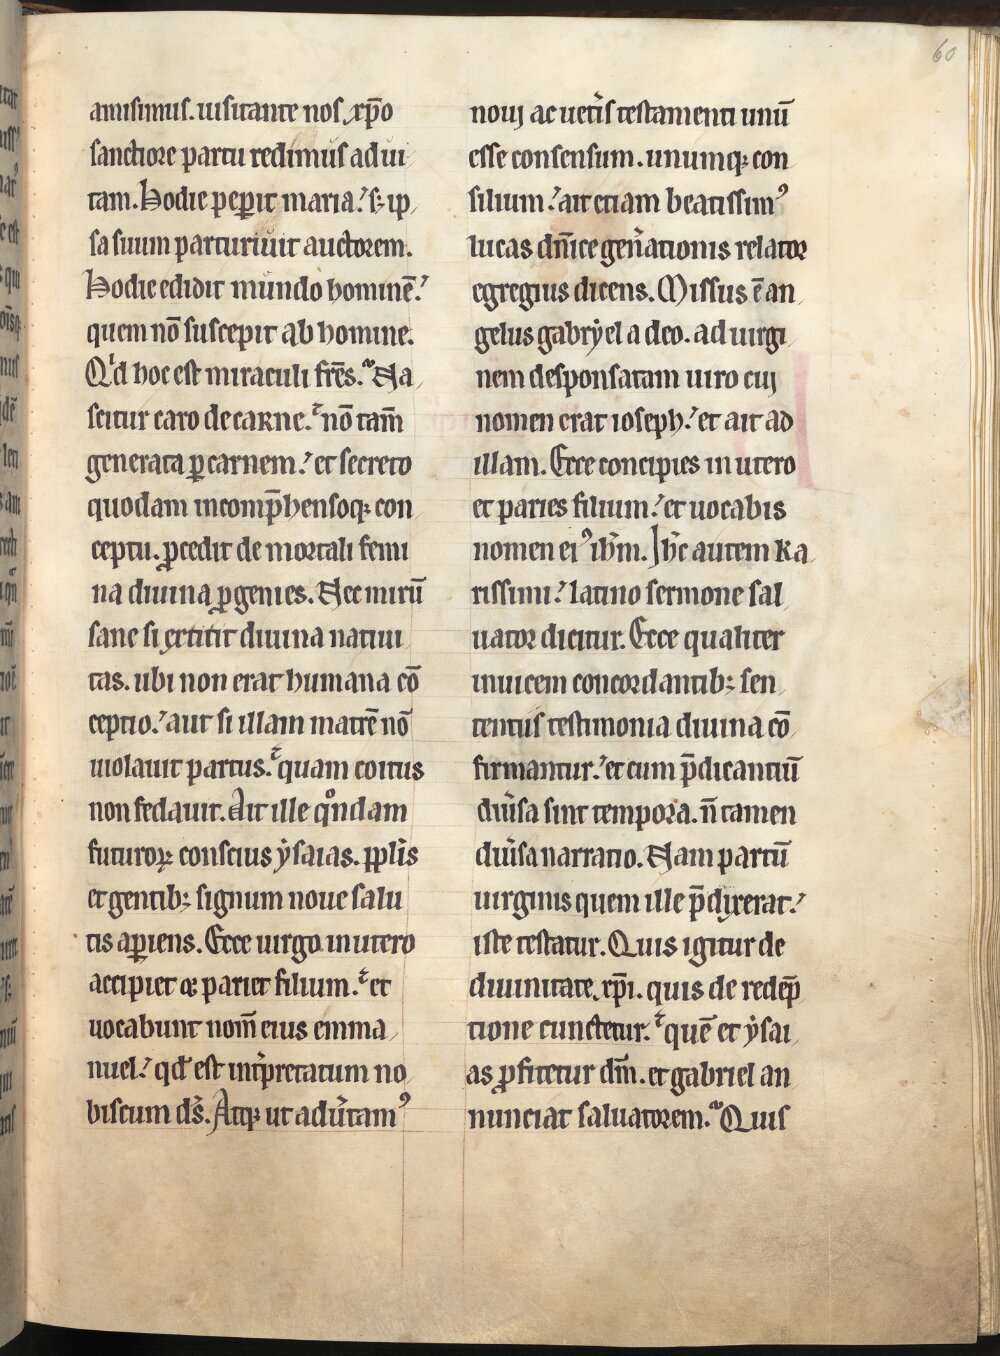 60
amisimus. uisitante nos xp̄o
sanctiore partu redimus ad ui
tam. Hodie peꝑit maria. sꝫ ip
sa suum parturiuit auctorem.
Hodie edidit mundo hominē.
quem nō suscepit ab homine.
Qͥd hoc est miraculi fr̄es. Na
scitur caro de carne. nō tam̄
generata ꝑ carnem. et secreto
quodam incomp̄hensoqꝫ con
ceptu. ꝓcedit de mortali femi
na diuina ꝓgenies. Nec mirū
sane si extitit diuina natiui
tas. ubi non erat humana cō
ceptio. aut si illam matrē nō
uiolauit partus. quam coitus
non fedauit. Ait ille qͦndam
futuroꝝ conscius ẏsaias. pp̄lis
et gentibꝫ signum noue salu
tis aꝑiens. Ecce uirgo in utero
accipiet & pariet filium. et
uocabunt nom̄ eius emma
nuel. qd̄ est int̄pretatum no
biscum ds̄. Atqꝫ ut adu̓tamꝰ
noui ac uet̓is testamenti unū
esse consensum. unumqꝫ con
silium. ait etiam beatissimꝰ
lucas dn̄ice gen̓ationis relator
egregius dicens. Missus ē an
gelus gabrẏel a deo. ad uirgi
nem desponsatam uiro cui
nomen erat ioseph. et ait ad
illam. Ecce concipies in utero
et paries filium. et uocabis
nomen eiꝰ ih̄m. Hc̄ autem ka
rissimi. latino sermone sal
uator dicitur. Ecce qualiter
inuicem concordantibꝫ sen
tentiis testimonia diuina cō
firmantur. et cum p̄dicantiū
du̓sa sint tempora. n̄ tamen
du̓sa narratio. Nam partū
uirginis quem ille p̄dixerat.
iste testatur. Quis igitur de
diuinitate xp̄i. quis de redēp
tione cunctetur. quē et ẏsai
as ꝓfitetur dm̄. et gabriel an
nunciat saluatorem. Quis